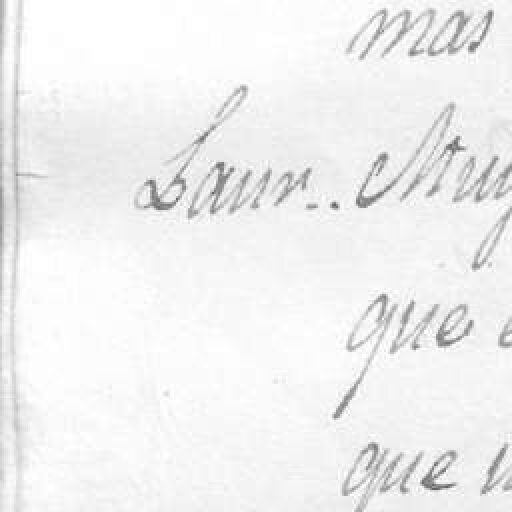 mas
Laur..
que
que